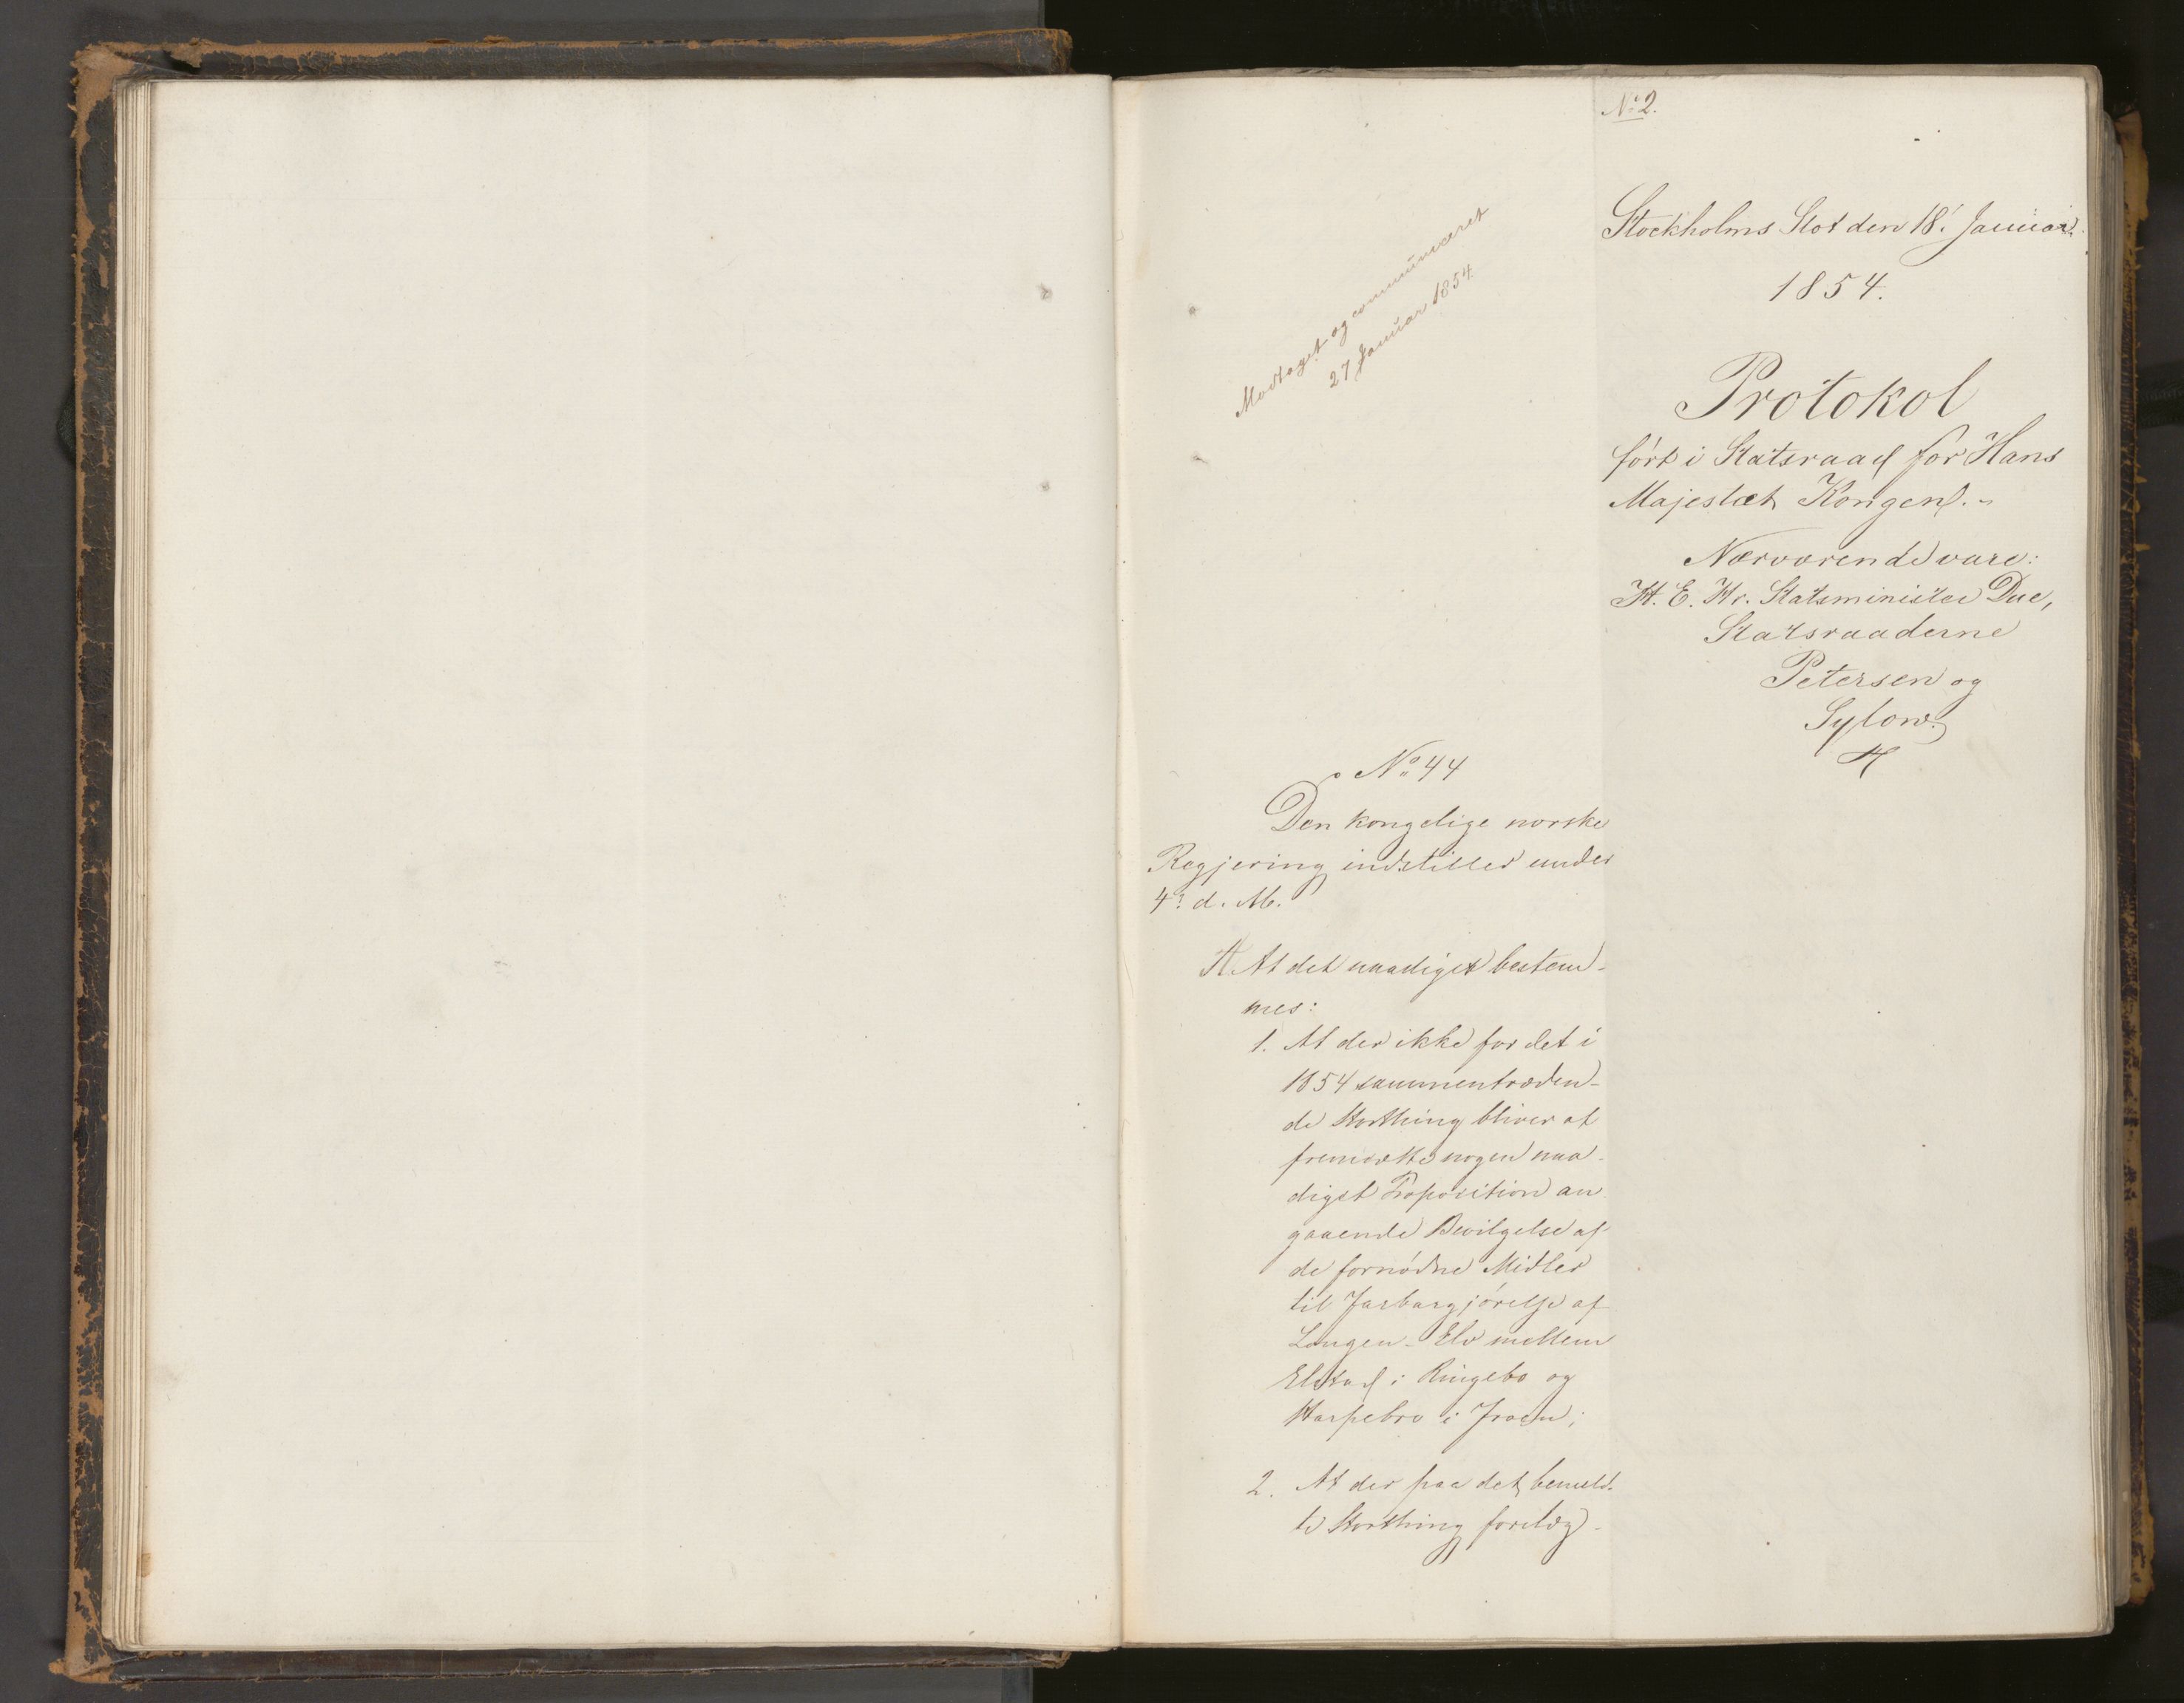 No 2.
Stockholms Slot den 18' Januar
1854.
Protokol
ført i Statsraad for Hans
Majestæt Kongen.
Nærværende vare:
H. E. Hr. Statsminister Due,
Statsraaderne
Petersen og
Sylow.
Modtaget og communiceret
27 Januar 1854.
No 44
Den kongelige norske
Regjering indstiller under
4. d. M.
A. At det naadigst bestem-
mes:
1. At der ikke for det i
1854 sammentræden-
de Storthing bliver at
fremsætte nogen naa-
digst Proposition an
gaaende Bevilgelse af
de fornødne Midler
til Farbargjørelse af
Lougen-Elv mellem
Elstad i Ringebo og
Harpebro i Froen;
2. At der paa det bemeld-
te Storthing forelæg-